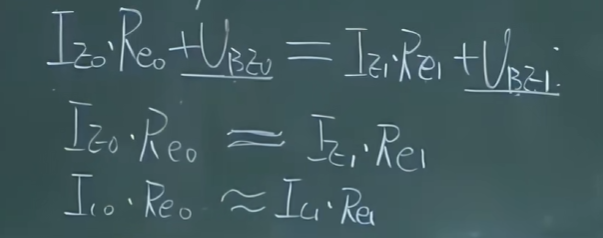 I_{E0}·Re_0 + U_{BE0} = I_{E1}·Re_1 + U_{BE1}
I_{E0}·Re_0 = I_{E1}·Re_1
I_{C0}·Re_0 ≈ I_{C1}·Re_1